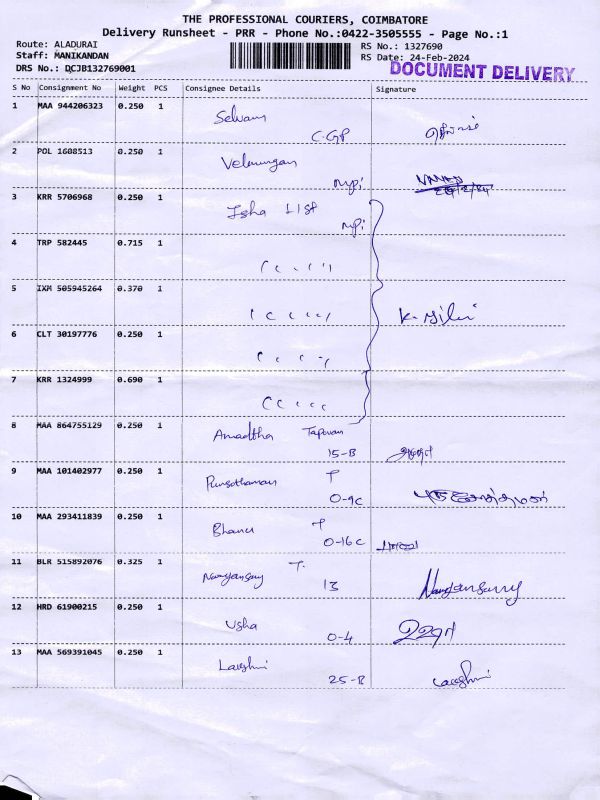 THE PROFESSIONAL COURIERS, COIMBATORE
Delivery Runsheet - PRR - Phone No.:0422-3505555 - Page No.:1
Route: ALADURAI
RS No.: 1327690
Staff: MANIKANDAN
RS Date: 24-Feb-2024
DRS No.: DCJB132769001
DOCUMENT DELIVERY
S No Consignment No Weight PCS Consignee Details Signature
1 MAA 944206323 0.250 1 Selvam
C.GP
2 POL 1608513 0.250 1 Velmurugan
Mpi
3 KRR 5706968 0.250 1 Isha LIST
Mpi
4 TRP 582445 0.715 1
5 IXM 505945264 0.370 1
6 CLT 30197776 0.250 1
7 KRR 1324999 0.690 1
8 MAA 864755129 0.250 1 Tapovan
15-B
9 MAA 101402977 0.250 1 T
0-9C
10 MAA 293411839 0.250 1 Bhanu T
0-16C
11 BLR 515892076 0.325 1 T.
13
12 HRD 61900215 0.250 1 Usha
0-4 உஷா
13 MAA 569391045 0.250 1 Lakshmi
25-B Lakshmi